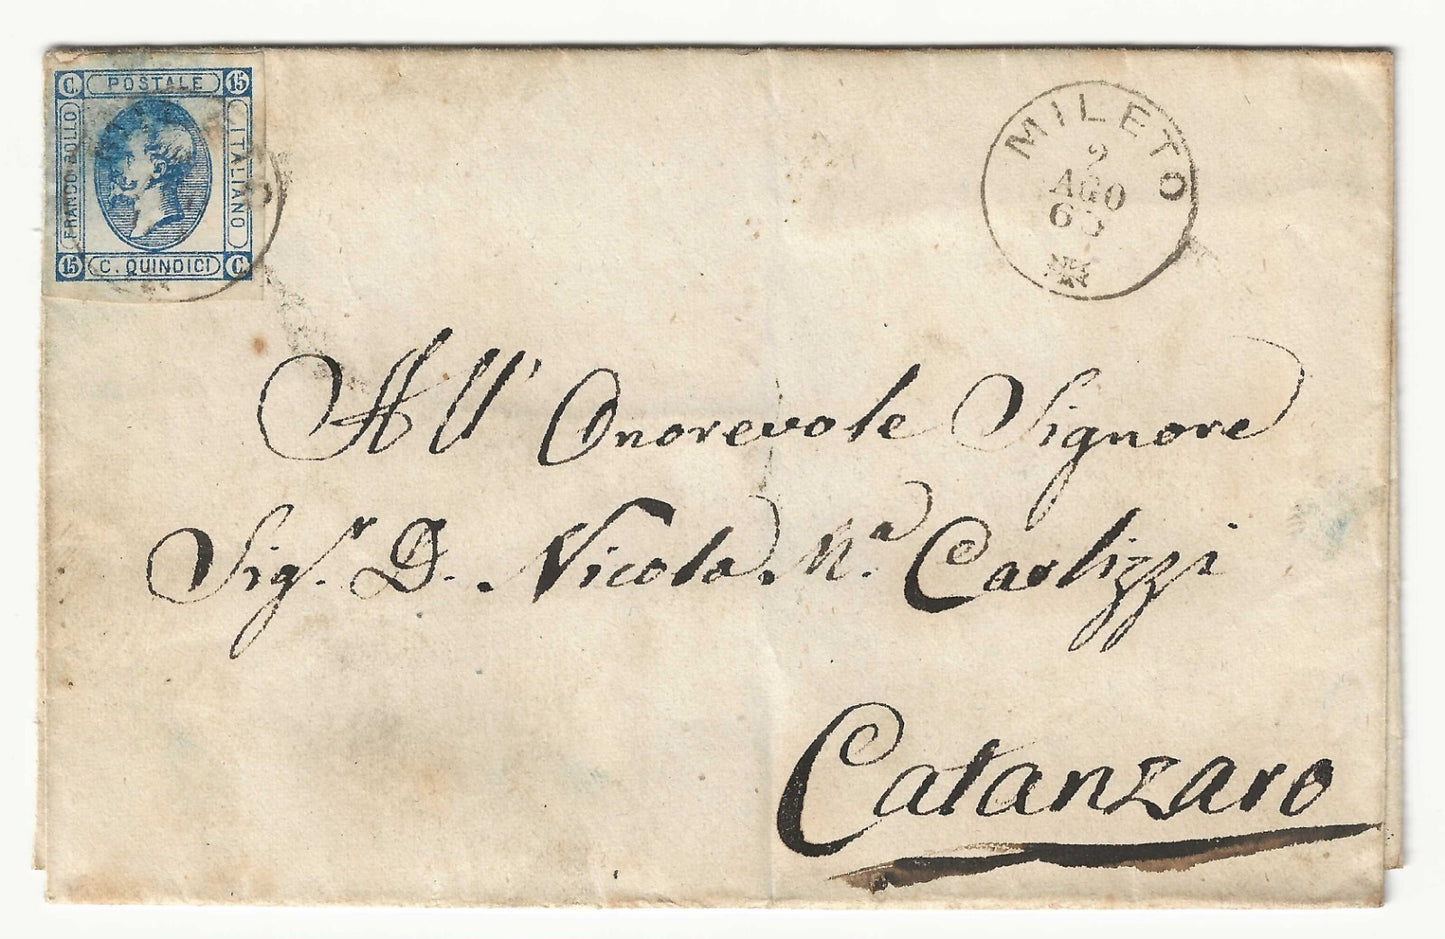 C. POSTALE 15
FRANCO BOLLO
ITALIANO
15 C. QUINDICI C.
MILETO
2
AGO
63
All' Onorevole Signore
Sig.r D. Nicola M.a Carlizzi
Catanzaro